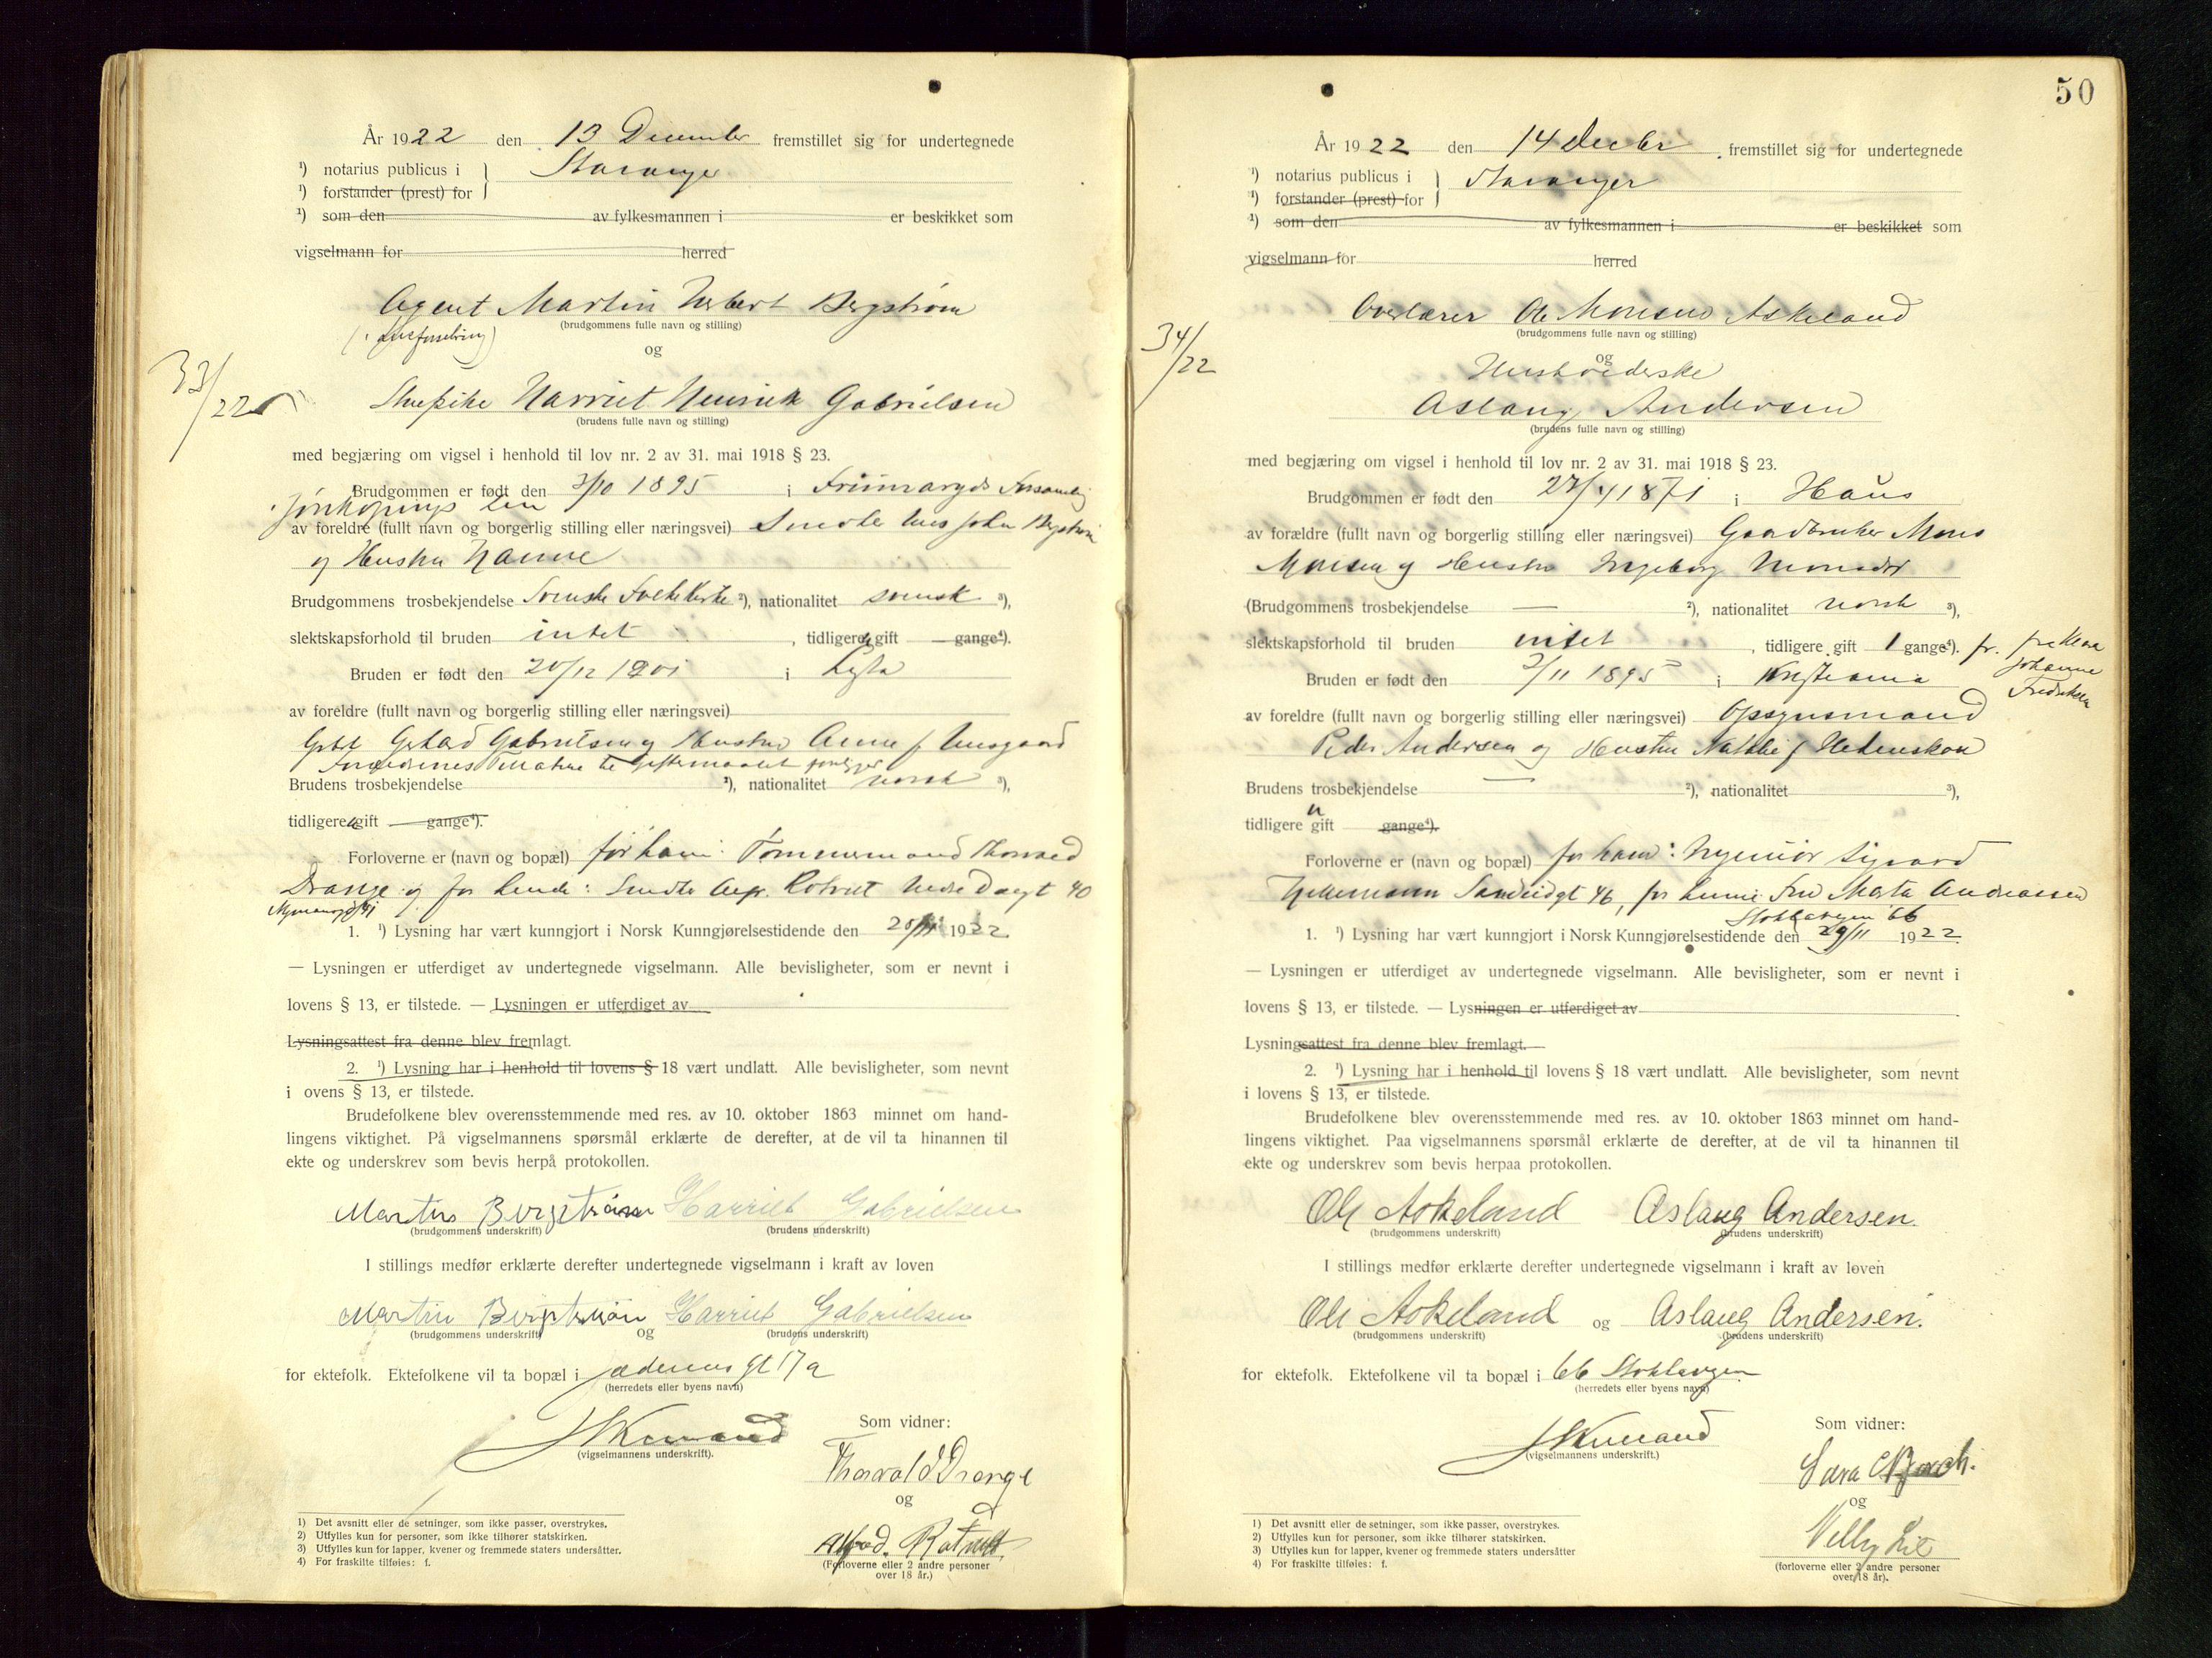 År 1922 den 13 December fremstillet sig for undertegnede
¹) notarius publicus i } Stavanger
¹) forstander (prest) for
¹) som den av fylkesmannen i er beskikket som
vigselmann for herred
Agent Martin Herbert Bergstrøm
(brudgommens fulle navn og stilling)
og
33/22
Harriet Henrik Gabrielsen
(brudens fulle navn og stilling)
med begjæring om vigsel i henhold til lov nr. 2 av 31. mai 1918 § 23.
Brudgommen er født den 3/10 1895 i
Jönköpings len
av foreldre (fullt navn og borgerlig stilling eller næringsvei) John Bergstrøm
og Hustru Hanne
Brudgommens trosbekjendelse Svenske Folkekirke ²), nationalitet svensk ³),
slektskapsforhold til bruden intet , tidligere u gift gange⁴).
Bruden er født den 20/12 1901 i Lysta
av foreldre (fullt navn og borgerlig stilling eller næringsvei)
Gabrielsen og Hustru Anne f
til giftermaalet foreligger
Brudens trosbekjendelse ²), nationalitet norsk ³),
tidligere u gift gange⁴).
Forloverne er (navn og bopæl) for ham: Tømmermand Thorvald
Drange og for hende: 40
1. ¹) Lysning har vært kunngjort i Norsk Kunngjørelsestidende den 1922
— Lysningen er utferdiget av undertegnede vigselmann. Alle bevisligheter, som er nevnt i
lovens § 13, er tilstede. — Lysningen er utferdiget av
Lysningsattest fra denne blev fremlagt.
2. ¹) Lysning har i henhold til lovens § 18 vært undlatt. Alle bevisligheter, som nevnt
i ovens § 13, er tilstede.
Brudefolkene blev overensstemmende med res. av 10. oktober 1863 minnet om hand-
lingens viktighet. På vigselmannens spørsmål erklærte de derefter, at de vil ta hinannen til
ekte og underskrev som bevis herpå protokollen.
Martin Bergstrøm Harriet Gabrielsen
(brudgommens underskrift) (brudens underskrift)
I stillings medfør erklærte derefter undertegnede vigselmann i kraft av loven
Martin Bergstrøm Harriet Gabrielsen
(brudgommens underskrift) og (brudens underskrift)
for ektefolk. Ektefolkene vil ta bopæl i gt 17 a
(herredets eller byens navn)
Som vidner:
(vigselmannens underskrift).
Thorvald Drange
og
(Forloverne eller 2 andre personer
over 18 år.)
1) Det avsnitt eller de setninger, som ikke passer, overstrykes.
2) Utfylles kun for personer, som ikke tilhører statskirken.
3) Utfylles kun for lapper, kvener og fremmede staters undersåtter.
4) For fraskilte tilføies: f.
50
År 1922 den 14 decbr fremstillet sig for undertegnede
¹) notarius publicus i } Stavanger
¹) forstander (prest) for
¹) som den av fylkesmannen i er beskikket som
vigselmann for herred
Overlærer Ole Monsen Askeland
(brudgommens fulle navn og stilling)
34/22
og
Husholderske
Aslaug Andersen
(brudens fulle navn og stilling)
med begjæring om vigsel i henhold til lov nr. 2 av 31. mai 1918 § 23.
Brudgommen er født den 1871 i Haus
av forældre (fullt navn og borgerlig stilling eller næringsvei) Gaardbruker Mons
Monsen og Hustru Ingeborg Monsdr
(Brudgommens trosbekjendelse — ²), nationalitet norsk ³),
slektskapsforhold til bruden intet , tidligere gift 1 gange⁴).
Johanne
Bruden er født den 2/11 1895 i Kristiania
av foreldre (fullt navn og borgerlig stilling eller næringsvei) Opsynsmand
Peder Andersen og Hustru
Brudens trosbekjendelse — ²), nationalitet ³),
tidligere u gift gange⁴).
Forloverne er (navn og bopæl) for ham: Ingeniør Sigvard
46, for hende: Fru Marta Andreassen
66
1. ¹) Lysning har vært kunngjort i Norsk Kunngjørelsestidende den 29/11 1922
— Lysningen er utferdiget av undertegnede vigselmann. Alle bevisligheter, som er nevnt i
lovens § 13, er tilstede. — Lysningen er utferdiget av
Lysningsattest fra denne blev fremlagt.
2. ¹) Lysning har i henhold til lovens § 18 vært undlatt. Alle bevisligheter, som nevnt
i lovens § 13, er tilstede.
Brudefolkene blev overensstemmende med res. av 10. oktober 1863 minnet om hand-
lingens viktighet. Paa vigselmannens spørsmål erklærte de derefter, at de vil ta hinannen til
ekte og underskrev som bevis herpaa protokollen.
Ole Askeland Aslaug Andersen.
(brudgommens underskrift) (brudens underskrift)
I stillings medfør erklærte derefter undertegnede vigselmann i kraft av loven
Ole Askeland og Aslaug Andersen.
(brudgommens underskrift) (brudens underskrift)
for ektefolk. Ektefolkene vil ta bopæl i 66
(herredets eller byens navn)
Som vidner:
(vigselmannens underskrift.)
Sara
og
Villy Lie
(forloverne eller 2 andre personer
over 18 år).
1) Det avsnitt eller de setninger, som ikke passer, overstrykes.
2) Utfylles kun for personer, som ikke tilhører statskirken.
3) Utfylles kun for lapper, kvener og fremmede staters undersåtter
4) For fraskilte tilføies: f.